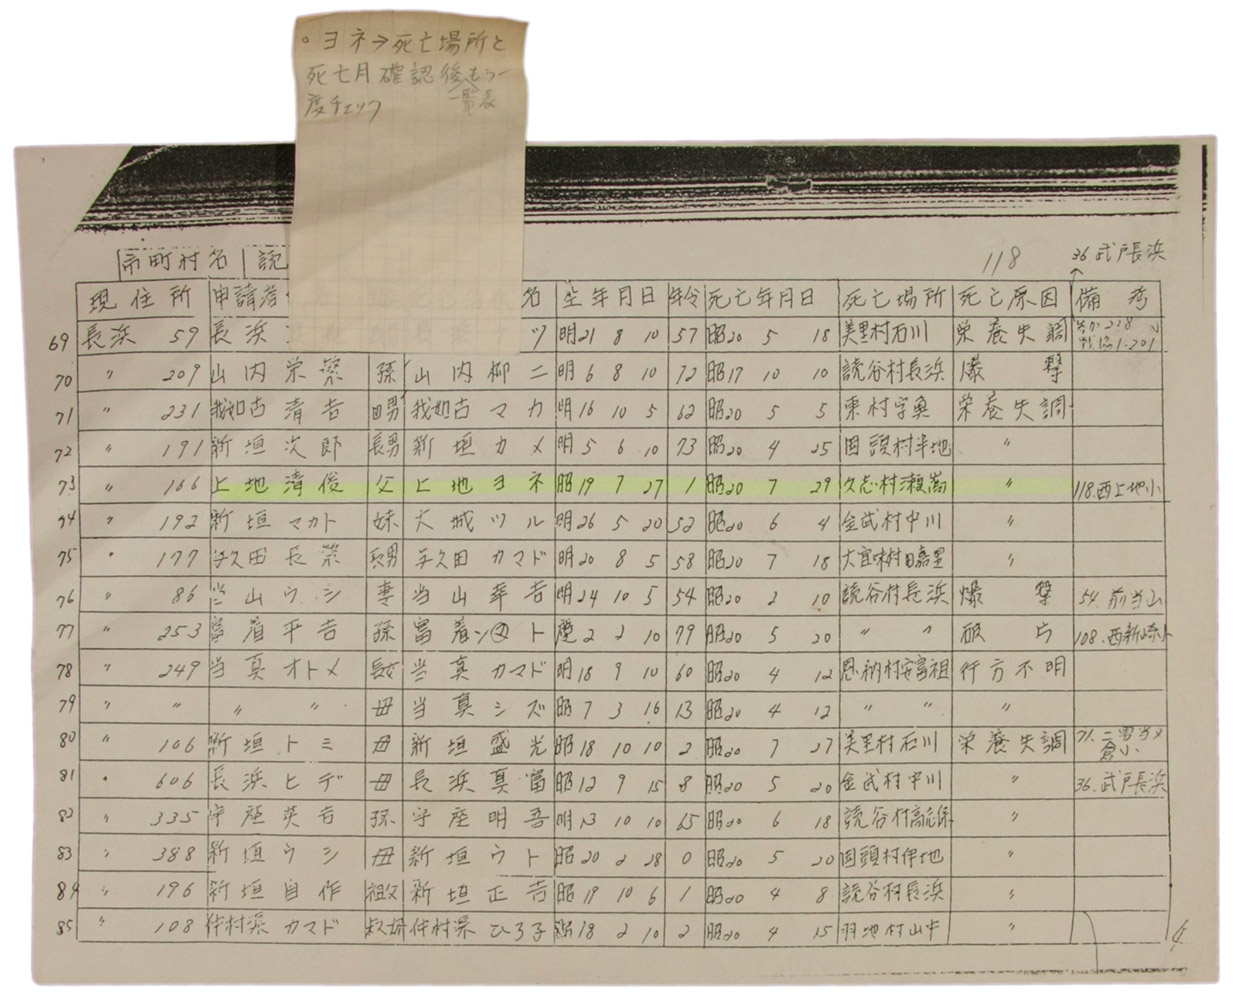 。ヨネ→死亡場所と
死亡月確認後もう一
一覧表
度チェック
市町村名 読
118 36 武戸長浜
現住所 申請者 名 生年月日 年令 死亡年月日 死亡場所 死亡原因 備考
69 長浜 59 長浜 ツ 明21 8 10 57 昭20 5 18 美里村石川 栄養失調
70 〃 209 山内栄築 孫 山内柳二 明6 8 10 72 昭17 10 10 読谷村長浜 爆撃
71 〃 231 我如古清吉 男 我如古マカ 明16 10 5 62 昭20 5 5 東村字 栄養失調
72 〃 191 新垣次郎 長男 新垣カメ 明5 6 10 73 昭20 4 25 国頭村半地 〃
73 〃 166 上地清俊 父 上地ヨネ 昭19 7 27 1 昭20 7 29 久志村瀬嵩 〃 118.西上地小
74 〃 192 新垣マカト 妹 大城ツル 明26 5 20 52 昭20 6 4 金武村中川 〃
75 〃 177 与久田長築 長男 与久田カマド 明20 8 5 58 昭20 7 18 大宜味村田嘉里 〃
76 〃 86 当山ウシ 妻 当山幸吉 明24 10 5 54 昭20 2 10 読谷村長浜 爆撃 54.前当山
77 〃 253 富着平吉 孫 富着 ト 慶2 2 10 79 昭20 5 20 〃 〃 破片 108.西新
78 〃 249 当真オトメ 長女 当真カマド 明18 9 10 60 昭20 4 12 恩納村安富祖 行方不明
79 〃 〃 〃 〃 母 当真シズ 昭7 3 16 13 昭20 4 12 〃 〃 〃
80 〃 106 新垣トミ 母 新垣盛光 昭18 10 10 2 昭20 7 27 美里村石川 栄養失調 71.
81 〃 606 長浜ヒデ 母 長浜真富 昭12 9 15 8 昭20 5 20 金武村中川 〃 36.武戸長浜
82 〃 335 宇座英吉 孫 宇座明吾 明13 10 10 65 昭20 6 18 読谷村高志保 〃
83 〃 388 新垣ウシ 母 新垣ウト 昭20 2 28 0 昭20 5 20 国頭村伊地 〃
84 〃 196 新垣自作 祖父 新垣正吉 昭19 10 6 1 昭20 4 8 読谷村長浜 〃
85 〃 108 仲村渠カマド 叔母 仲村渠ひろ子 昭18 2 10 2 昭20 4 15 羽地村山中 〃